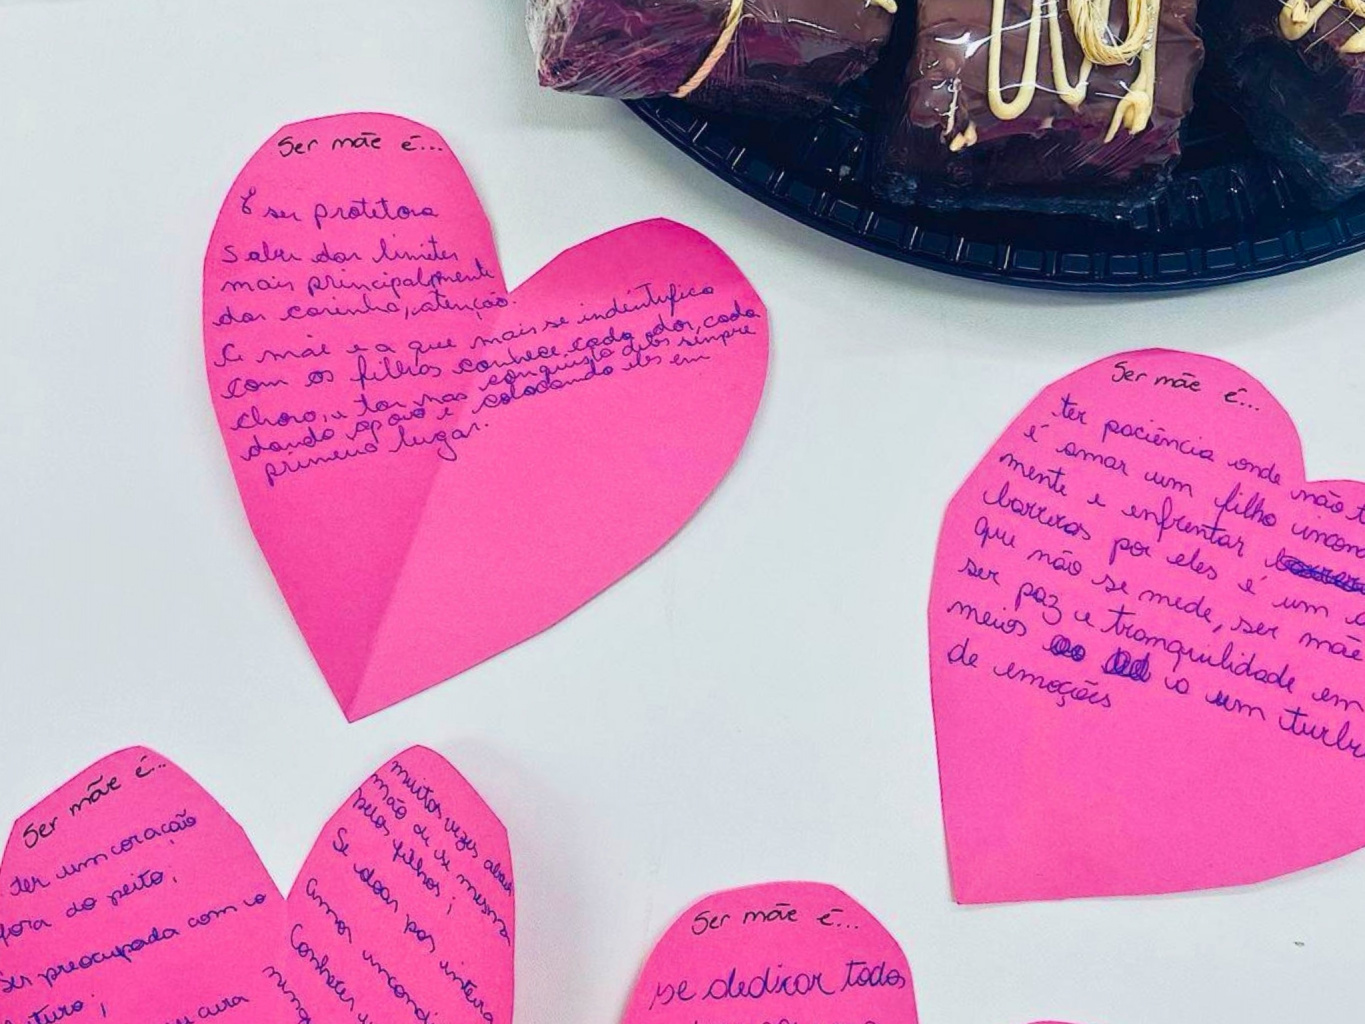 Ser mãe é...
É ser protetora
Saber dar limites
mais principalmente
dar carinha, atenção.
A mãe e a que mais se indentifica
com os filhos conhece cada dor, cada
choro, e tor nas conquista deles sempre
dando apoio e colocando eles em
primeiro lugar.
Ser mãe é...
ter paciência onde não t
é amar um filho incon
mente e enfrentar
barreras por eles é um a
que não se mede, ser mãe
ser paz e tranquilidade em
meios a um turbi
de emoções
Ser mãe é...
ter um coração
fora do peito;
Ser preocupada com o
futuro;
cura
muitas vezes abrir
mão de si mesma
pelos filhos;
Se doar por inteira
Amor incondi
Conhecer
ning
Ser mãe é...
se dedicar todos